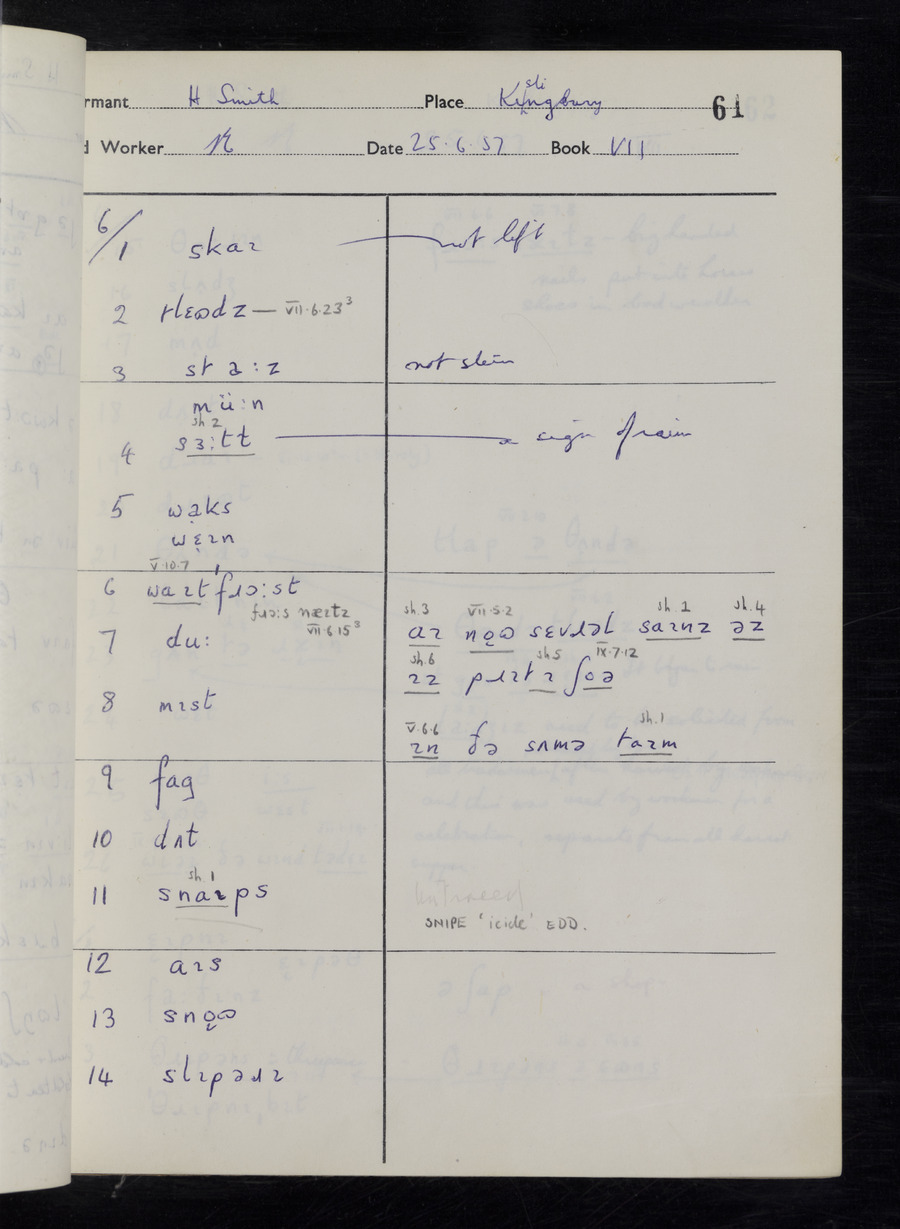 rmant H Smith Place Kingsbury sli 61
Worker Date 25.6.57 Book VII
6/1 skaɪ not left
2 tlɛɷdz — VII.6.23³
3 sta:z not stein
mü:n
sh 2
4 sɜ:tt a sign of rain
5 waks
wɛɪn
V.10.7
6 waɪt fɹɔ:st
fɹɔ:s næɪtz
VII.6.15³
sh.3 VII.5.2 sh.1 sh.4
7 du: aɪ noɷ sɛvɹəl saɪnz əz
sh.6 sh5 IX.7.12
ɪz pɹɪtɪ ʃoə
8 mɪst
V.6.6 sh.1
ɪn ðə sʌmə taɪm
9 fag
10 dʌt
sh.1
11 snaɪps
SNIPE 'icicle' EDD.
12 aɪs
13 snoɷ
14 slɪpəɹɪ